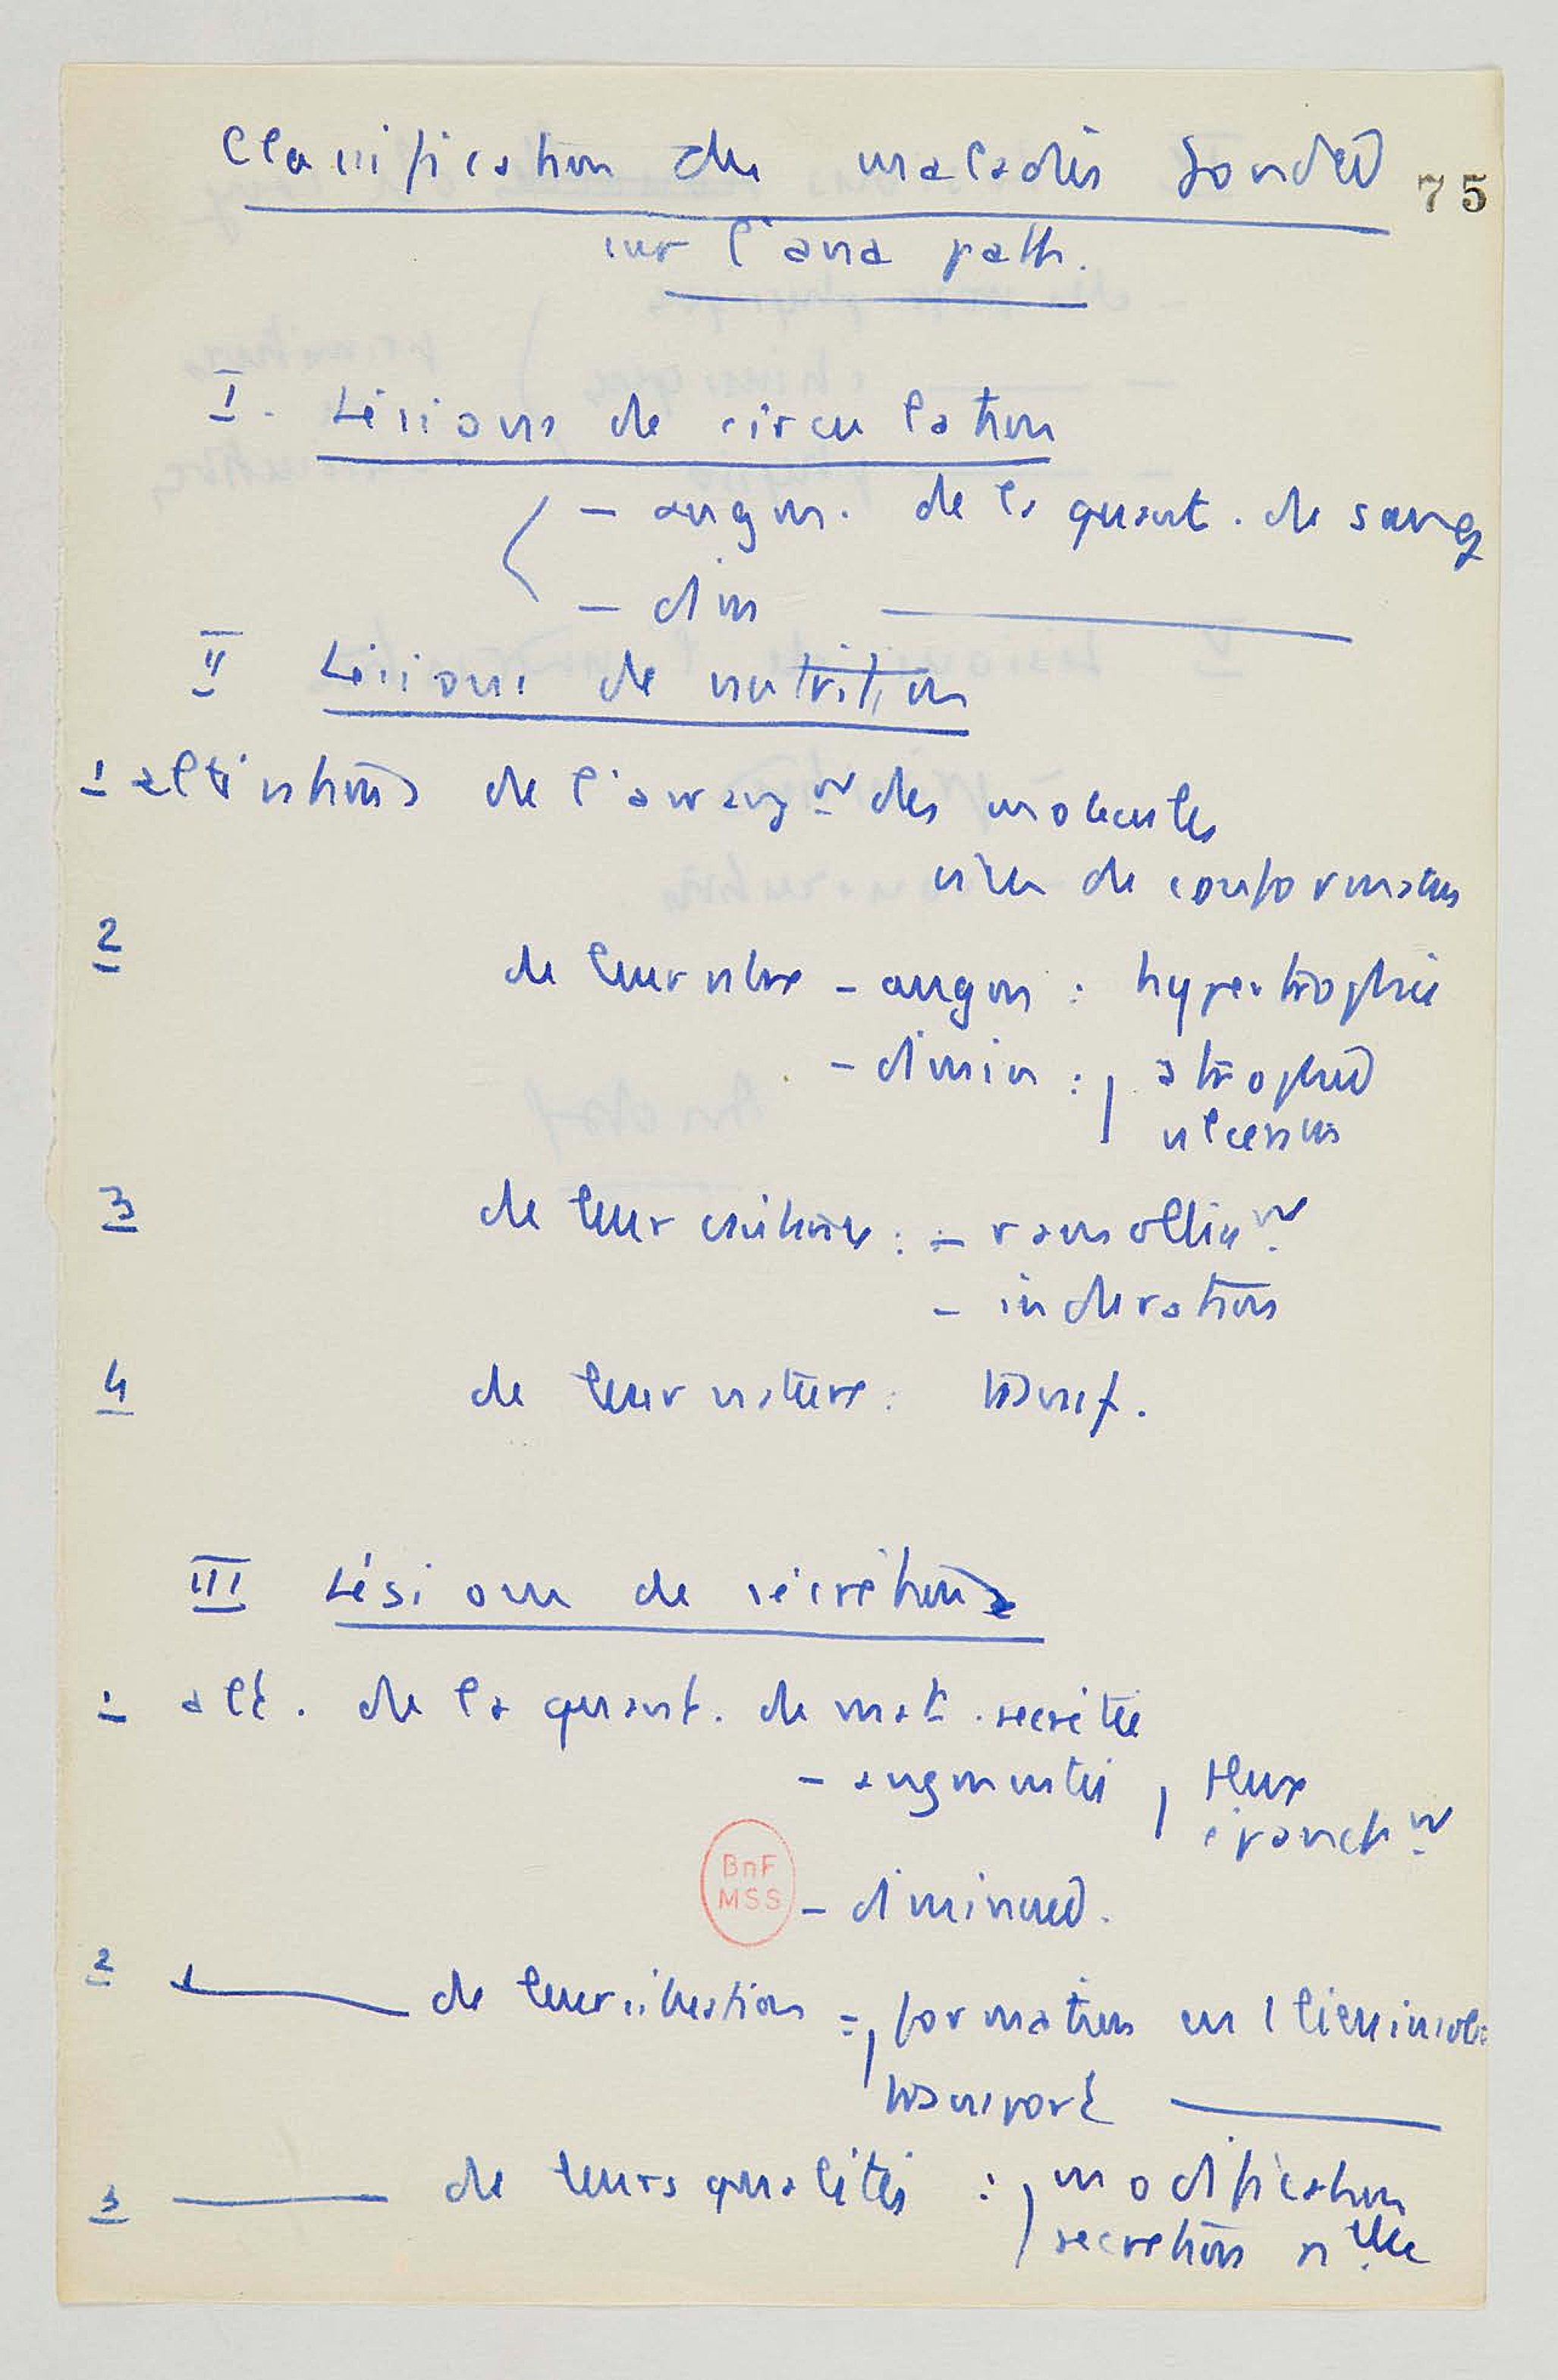 Classification des maladies fondées
75
sur l'ana path.
I. Lésions de circulation
- augm. de la quant. de sang
- dim
II Lésions de nutrition
1 altérations de l'arrangt des molécules
vices de conformation
2
de leur nbre - augm : hypertrophie
- dimin : atrophie
ulcérations
3
de leur consistance : - ramollisst
- induration
4
de leur nature : transf.
III Lésions de sécrétions
1 alt. de la quant. de mat. secrétée
- augmentée, flux
épancht
BnF
MSS
- diminuée.
2 de leur situation = formation en 1 lieu insol
transport
3 de leurs qualités : modification
secrétion nlle